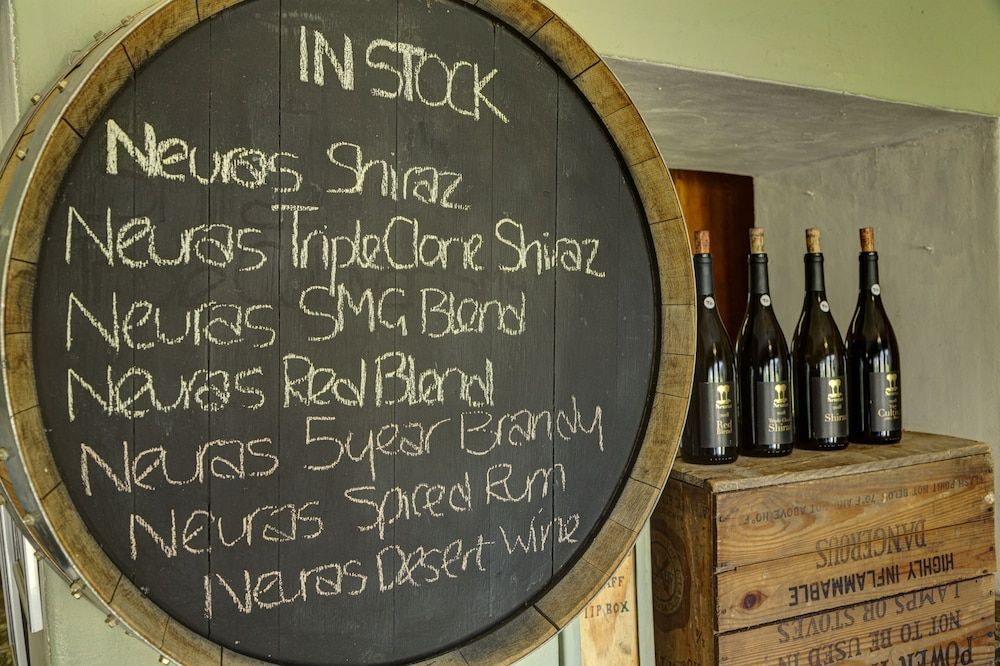 IN STOCK
Neuras Shiraz
Neuras Triple Clone Shiraz
Neuras SMG Blend
Neuras Red Blend
Neuras 5year Brandy
Neuras Spiced Rum
Neuras Desert Wine
Red
Blend
Shiraz
Shiraz
FLASH POINT NOT BELOW 76°F AND
NOT ABOVE
DANGEROUS
HIGHLY INFLAMMABLE
LAMPS OR STOVES
NOT TO BE USED IN
POWER
TIP BOX